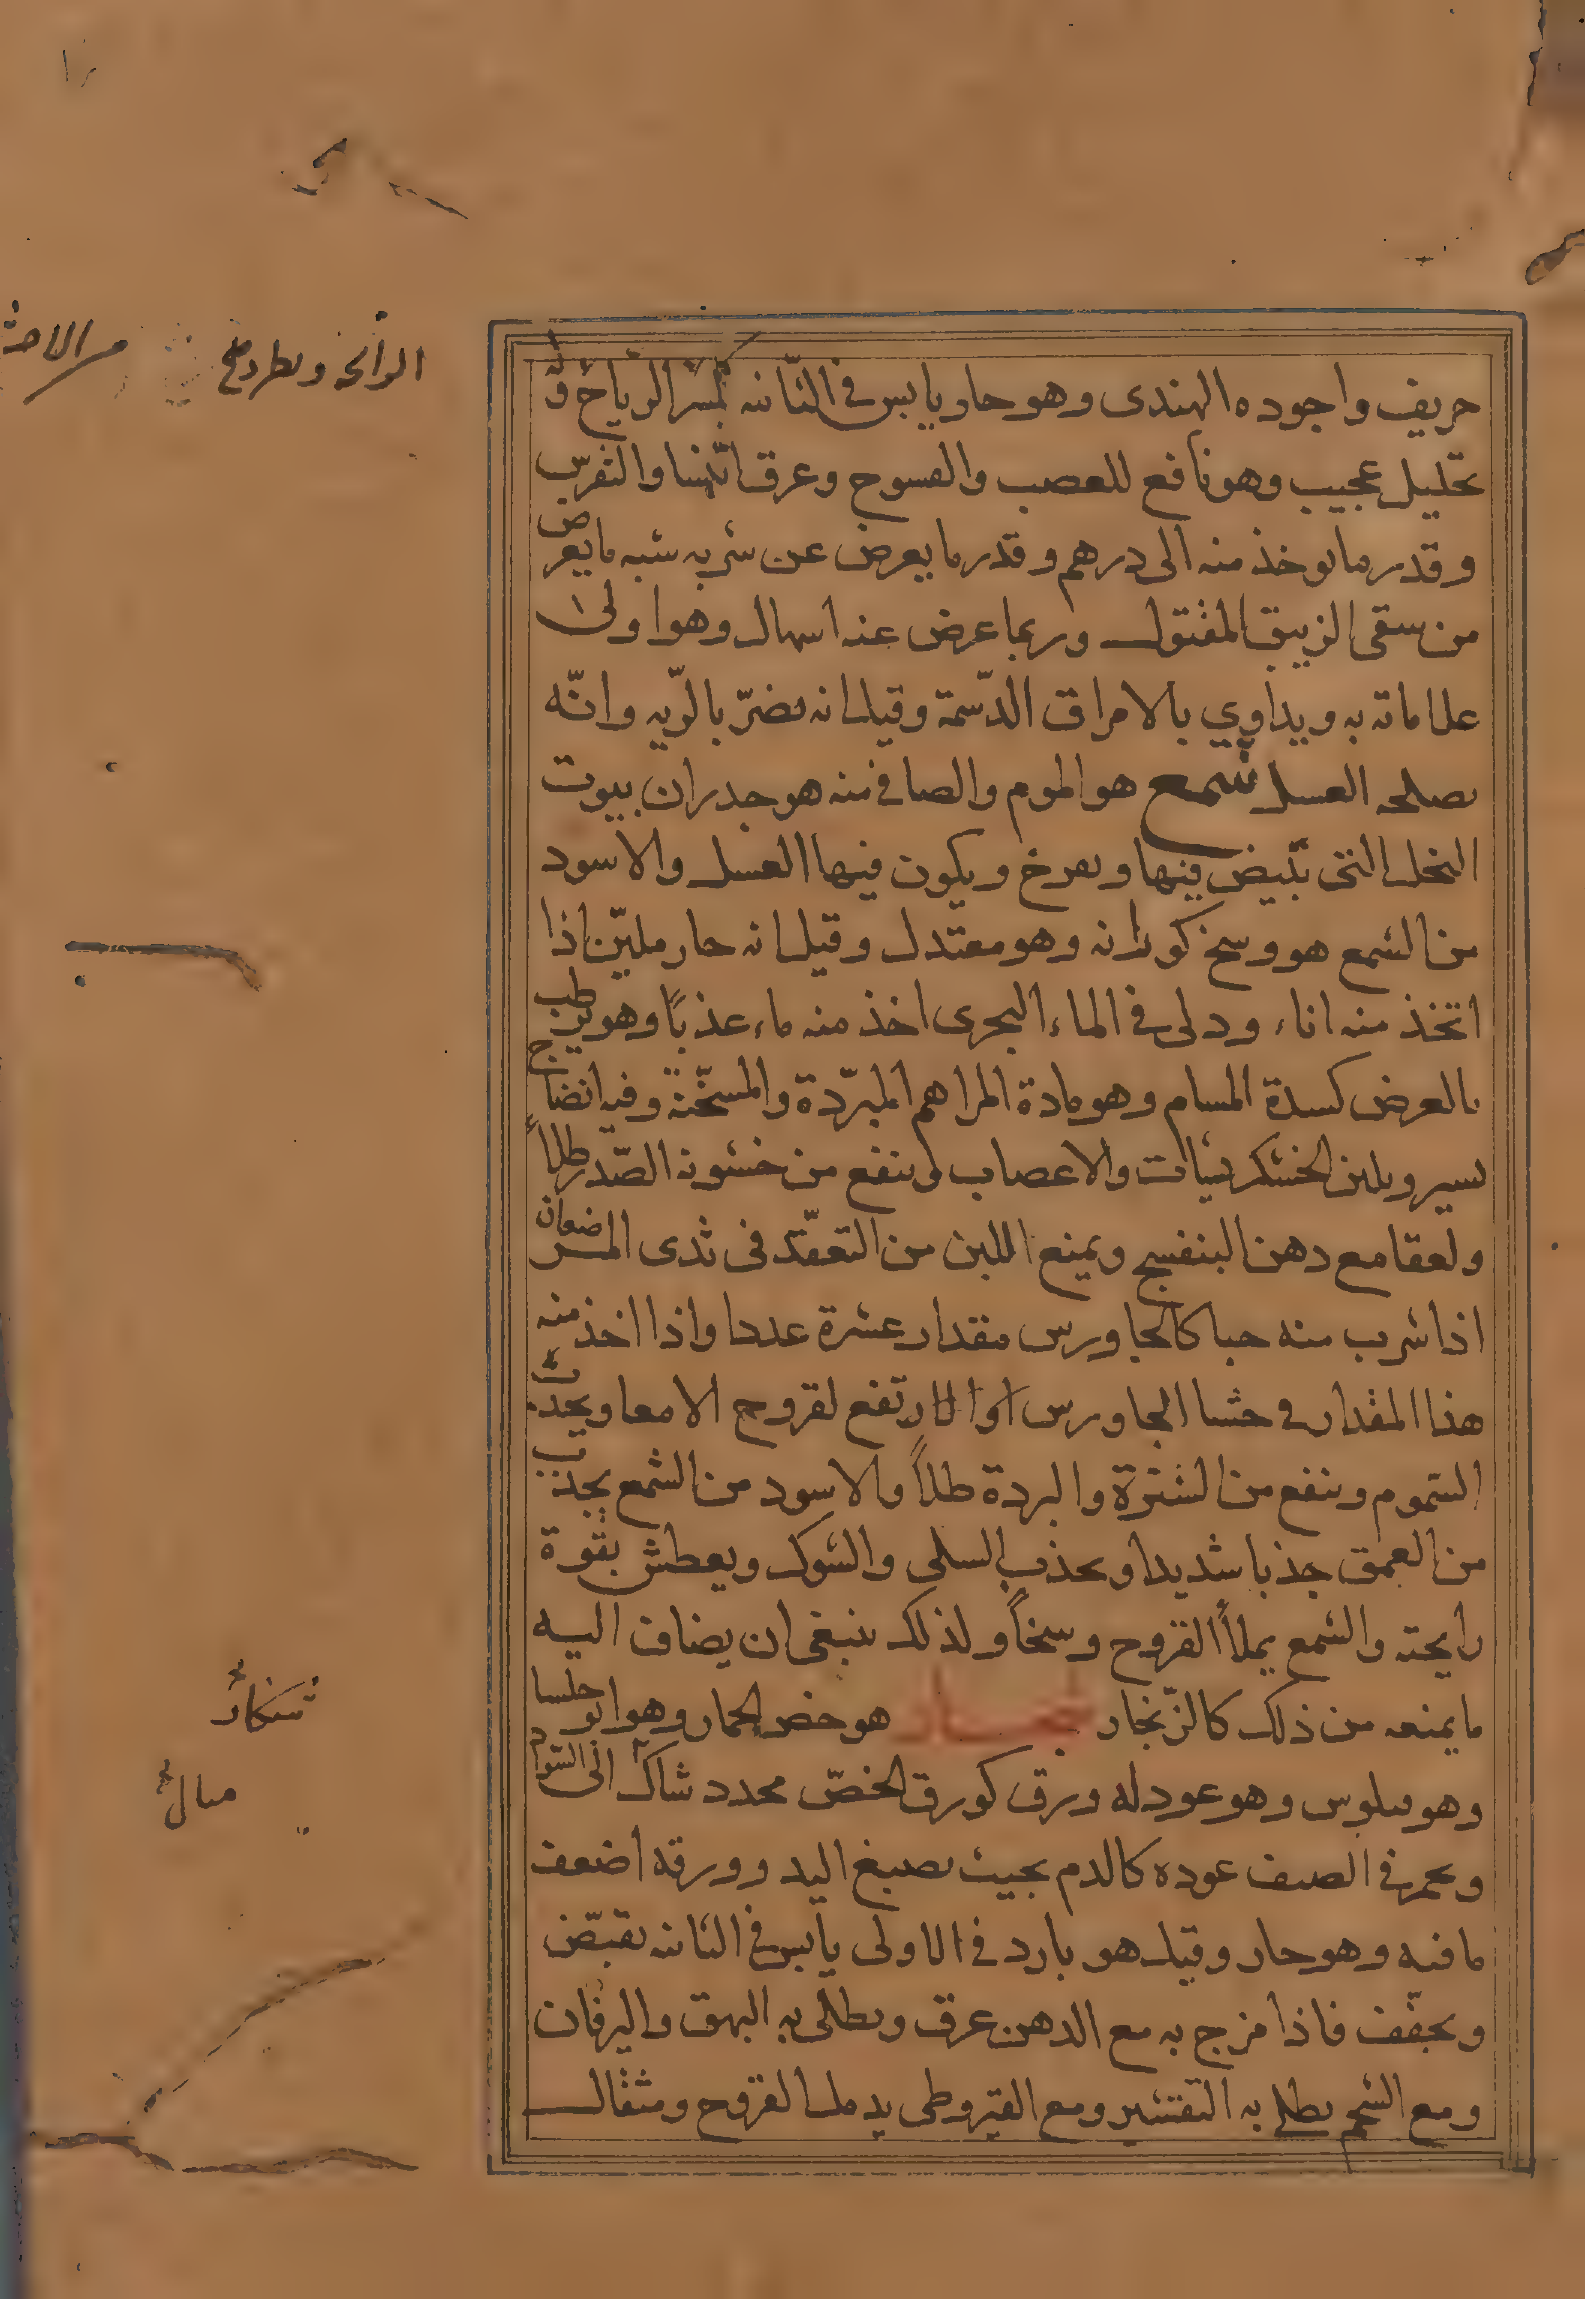 حريف واجوده الهندى وهو حار يابس فى الثانيه يكسر الرياح وله
تحليل عجيب وهو نافع للعصب والفسوخ وعرق النسا والنقرس
وقدر ما يوخذ منه الى درهم وقدر ما يعرض عن شربه شبه ما يعرض
من سقى الزيبق المقتول وربما عرض عنه اسهال وهو اولى
علاماته به ويداوي بالامراق الدّسمة وقيل انه يضرّ بالريه وانّه
يصلحه العسل شمع هو الموم والصافى منه هو جدران بيوت
النحل التى تبيض فيها ويفرخ ويكون فيها العسل والاسود
من الشمع هو وسخ كوراته وهو معتدل وقيل انه حار مليّن اذا
اتخذ منه اناء ودلى فى الماء البحرى اخذ منه ماء عذبًا وهو يرطب
بالعرض كسدة المسام وهو مادة المراهم المبرّدة والمسخّنة وفيه انضاج
يسير ويلين الخشكريشات والاعصاب وينفع من خشونه الصّدر طلاءً
ولعقا مع دهن البنفسج ويمنع اللبن من التعقّد فى ثدى المرضعات
اذا شرب منه حبا كالجاورس مقدار عشرة عددا واذا اخذ منه
هذا المقدار فى حشا الجاورس او الارز نفع لقروح الامعا ويجذب
السّموم وينفع من الشترة والبردة طلاً والاسود من الشمع يجذب
من العمق جذبا شديدا ويجذب السلى والشوك ويعطش بقوة
رايحته والشمع يملأ القروح وسخاً ولذلك ينبغى ان يضاف اليه
ما يمنعه من ذلك كالزّنجار شنجار هو خس الحمار وهو ابوحلسا
وهو وهو عود له ورق كورق الخسّ محدد شاك الى السّواد
ويحمر فى الصيف عوده كالدم بحيث يصبغ اليد وورقه اضعف
ما فيه وهو حار وقيل هو بارد فى الاولى يابس فى الثانيه يقبّض
ويجفّف فاذا مزج به مع الدهن عرق ويطلى به البهق واليرقان
ومع الشحم يطلى به التقشير ومع القيروطى يدمل القروح ومثقال
الرائحه ويطرد
شنكار